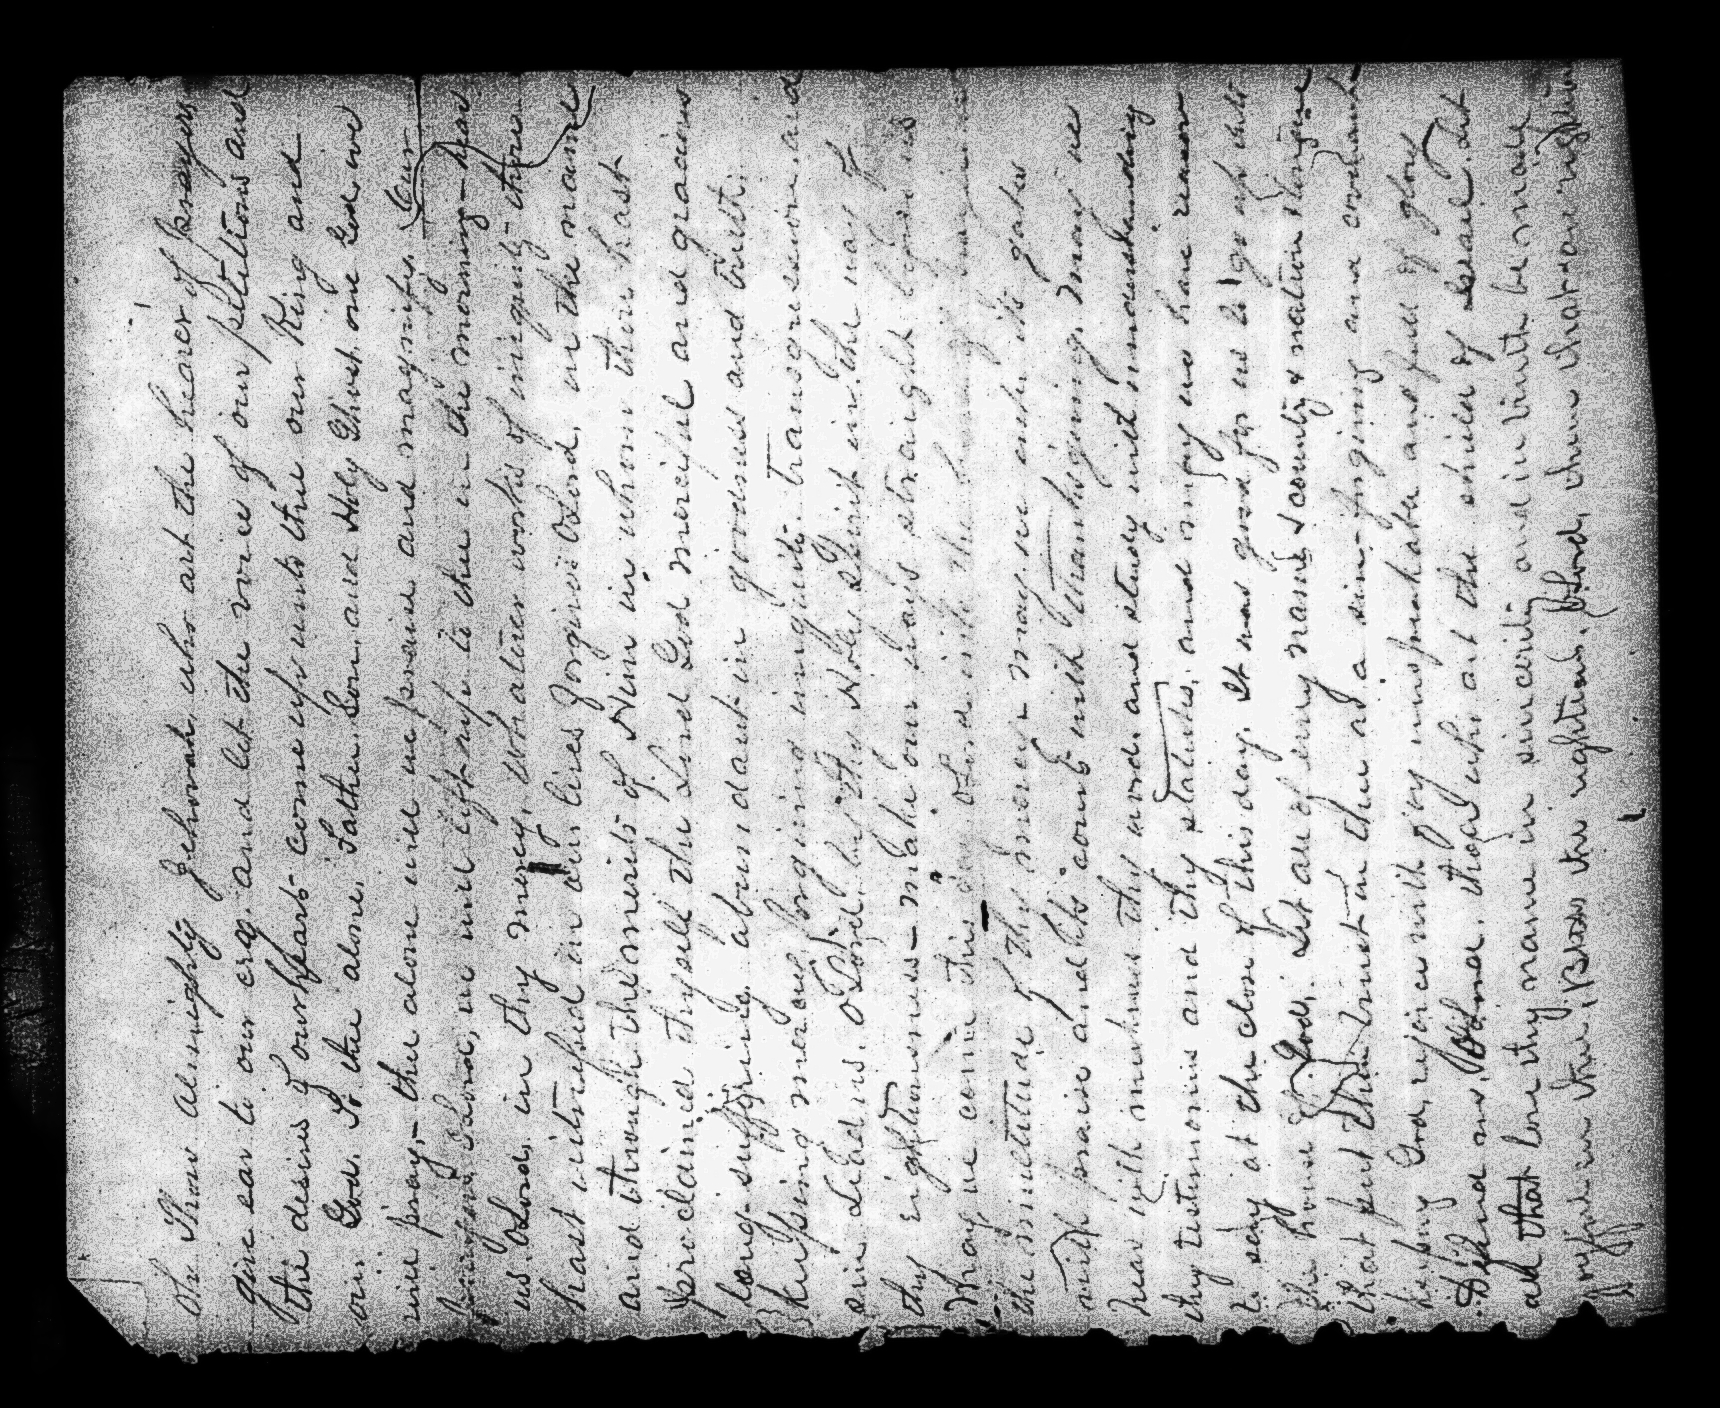 Oh Thou almighty Jehovah, who art the hearer of prayers
give ear to our cry, and let the voice of our petitions and
the desires of our hearts come up unto thee our King and
our God. To thee alone, Father, Son, and Holy Ghost one God, we
will pray,- thee alone will we praise and magnify. Our
prayers, O Lord, we will lift up to thee in the morning- hear
us, O Lord, in thy mercy. We are workers of iniquity- thou
hast witnessed in our lives forgive O Lord, in the name
and through the merits of Him in whom thou hast
proclaimed thyself the Lord God merciful and gracious
long-suffering, abundant in goodness and truth.
keeping mercy and forgiving iniquity transgression and
sin. Lead us, O Lord, by thy Holy Spirit in the way of
thy righteousness- make our ways straight before us
May we come this day O Lord into the house
the multitude of thy mercy- may we enter its gates
with praise and its courts with thanksgiving, may we
hear with meekness thy word, and study with understanding
thy testimonies and thy statutes, and may we have reason
to say at the close of this day, It was good for us to go up into
the house of God. Let all of every name & country & nation rejoice
that put their trust in thee as a sin-forgiving and covenant
keeping God, rejoice with joy unspeakable and full of glory
Defend us, thou who art the shield of Israel. Let
all that love thy name in sincerity and in truth be made
joyful in thee, Bless the righteous, O Lord, them that are righteous